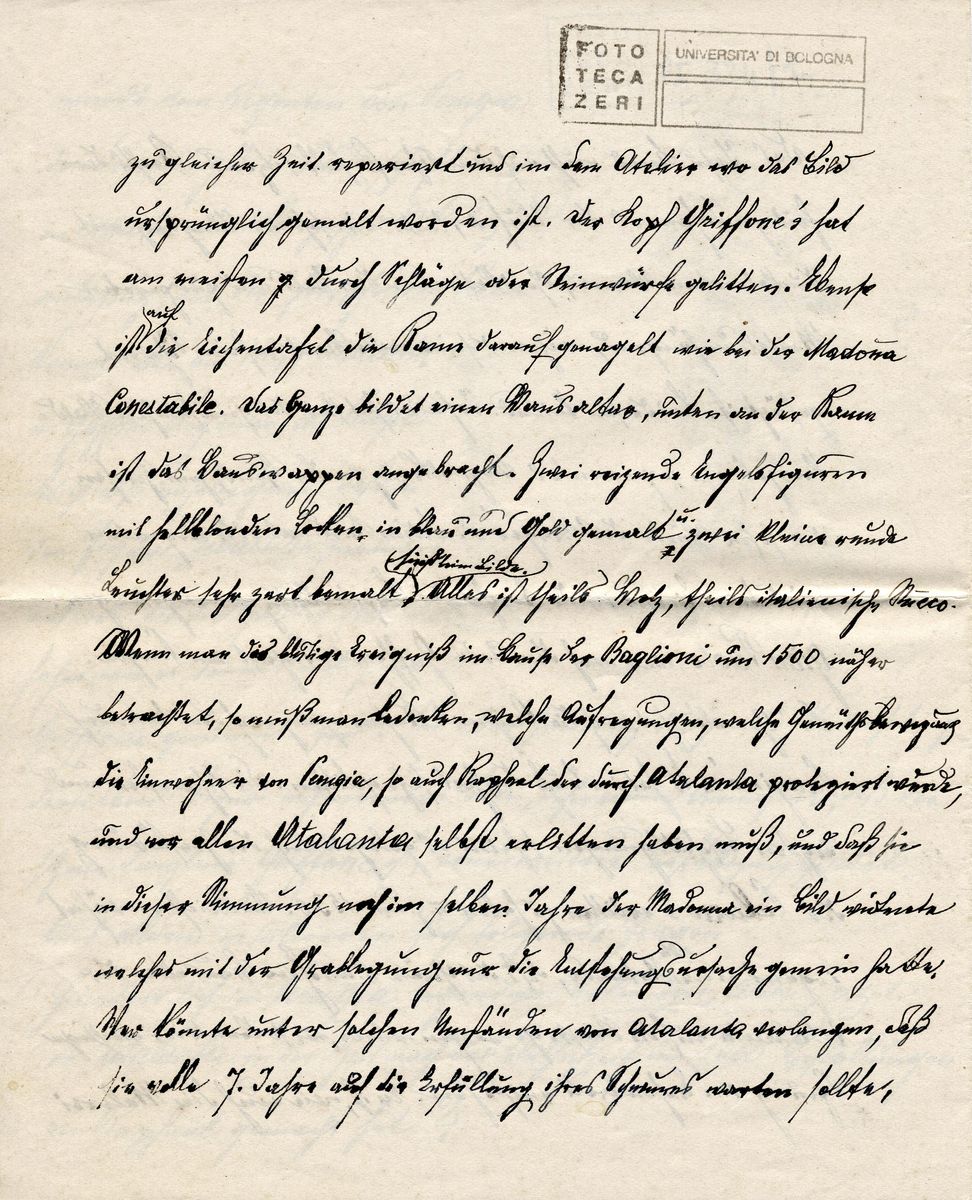 FOTO
TECA
ZERI
UNIVERSITA' DI BOLOGNA
zu gleicher Zeit repariert und im dem Atelier wo das Bild
ursprünglich gemalt worden ist. Der Kopf Griffone's hat
am meisten durch Schläge oder Steinwürfe gelitten. Ebenso
auf
ist die Eichentafel die Rame darauf genagelt wie bei der Madonna
Conestabile. Das Ganze bildet einen Hausaltar, unten an der Rame
ist das Hauswappen angebracht. Zwei reizende Engelsfiguren
mit hellblonden Locken, in blau und Gold gemalt u. zwei kleine runde
sind beim Bilde.
Leuchter sehr zart bemalt. Alles ist theils Holz, theils italienische Stucco.
Wenn man das blutige Ereigniß im Hause der Baglioni um 1500 näher
betrachtet, so muß man bedenken, welche Aufregungen, welche Gemüthsbewegung
die Einwohner von Perugia, so auch Raphael der durch Atalanta protegiert wurde,
und vor allen Atalanta selbst erlitten haben muß, und daß sie
in dieser Stimmung noch im selben Jahre der Madonna ein Bild widmete
welches mit der Grablegung nur die Entstehungsursache gemein hatte.
Wer könnte unter solchen Umständen von Atalanta verlangen, daß
sie volle 7. Jahre auf die Erfüllung ihres warten sollte,